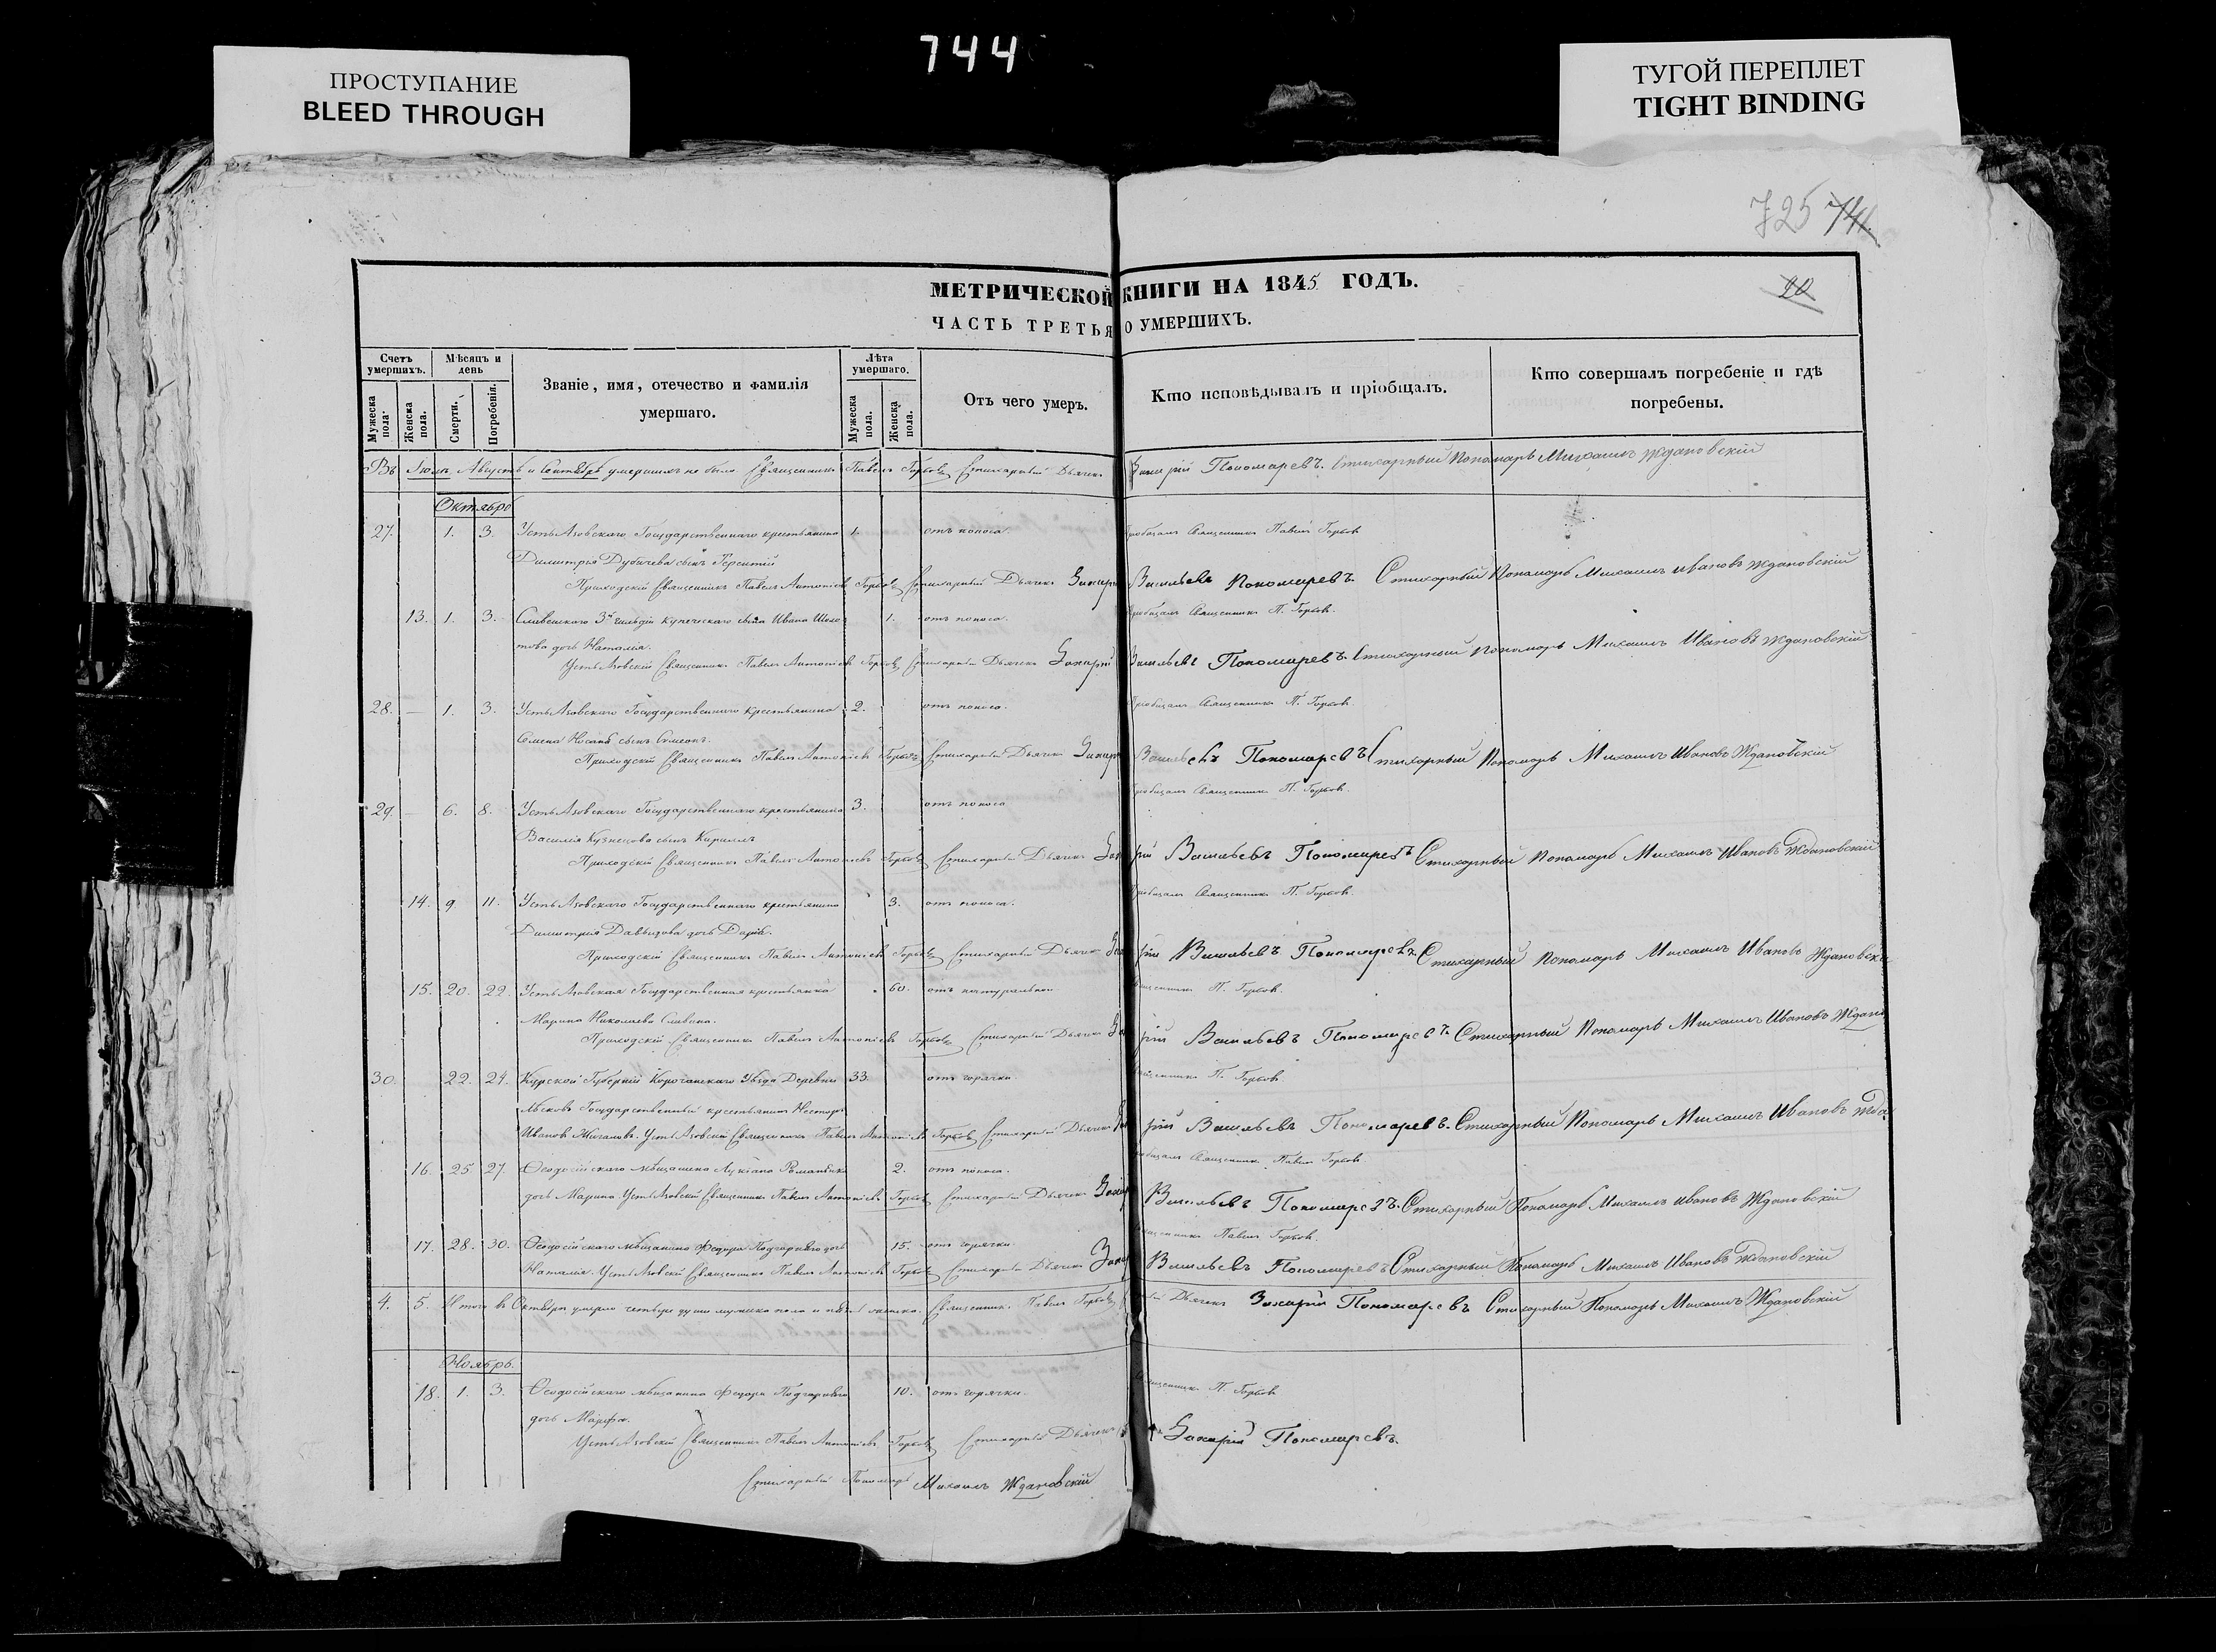 744
ПРОСТУПАНИЕ
BLEED THROUGH
ТУГОЙ ПЕРЕПЛЕТ
TIGHT BINDING
725 741.
МЕТРИЧЕСКОЙ КНИГИ НА 1845 ГОДЪ.
20
ЧАСТЬ ТРЕТЬЯ О УМЕРШИХЪ.
Счетъ умершихъ.
Мужеска пола.
Женска пола.
Мѣсяцъ и день
Смерти.
Погребенія.
Званіе, имя, отечество и фамилія умершаго.
Лѣта умершаго.
Мужеска пола.
Женска пола.
Отъ чего умеръ.
Кто исповѣдывалъ и пріобщалъ.
Кто совершалъ погребеніе и гдѣ погребены.
Въ Іюлѣ, Августѣ и Сентябрѣ умершихъ не было. Священникъ Павелъ Горбовъ Стихарный Дьячекъ Захарій Пономаревъ. Стихарный Пономарь Михаилъ Ждановскій
Октябрь
27. 1. 3. Усть Азовскаго Государственнаго крестьянина 1. отъ поноса. Пріобщалъ Священникъ Павелъ Горбов
Димитрія сынъ Терентій
Приходскій Священникъ Павелъ Антоніевъ Горбовъ Стихарный Дьячекъ Захарій Васильевъ Пономаревъ. Стихарный Пономарь Михаилъ Ивановъ Ждановскій
13. 1. 3. 3й гильдіи купеческаго сына Ивана 1. отъ поноса. Пріобщалъ Священникъ П. Горбов.
дочь Наталія.
Усть Азовскій Священникъ Павелъ Антоніевъ Горбовъ Стихарный Дьячекъ Захарій Васильевъ Пономаревъ. Стихарный Пономарь Михаилъ Ивановъ Ждановскій
28. — 1. 3. Усть Азовскаго Государственнаго Крестьянина 2. отъ поноса. Пріобщалъ Священникъ П. Горбов.
сынъ Симеонъ.
Приходскій Священникъ Павелъ Антоніевъ Горбовъ Стихарный Дьячекъ Захарій Васильевъ Пономаревъ Стихарный Пономарь Михаилъ Ивановъ Ждановскій
29. — 6. 8. Усть Азовскаго Государственнаго крестьянина 3. отъ поноса Пріобщалъ Священникъ П. Горбов.
Василія Кузнецова сынъ Кириллъ
Приходскій Священникъ Павелъ Антоніевъ Горбовъ Стихарный Дьячекъ Захарій Васильевъ Пономаревъ Стихарный Пономарь Михаилъ Ивановъ Ждановскій
14. 9. 11. Усть Азовскаго Государственнаго крестьянина 3. отъ поноса. Пріобщалъ Священникъ П. Горбов.
Димитрія Давыдова дочь Дарія.
Приходскій Священникъ Павелъ Антоніевъ Горбовъ Стихарный Дьячекъ Захарій Васильевъ Пономаревъ Стихарный Пономарь Михаилъ Ивановъ Ждановскі
15. 20. 22. Усть Азовская Государственная крестьянка 60. отъ натуральной Священникъ П. Горбов.
Марина Николаева
Приходскій Священникъ Павелъ Антоніевъ Горбовъ Стихарный Дьячекъ Захарій Васильевъ Пономаревъ Стихарный Пономарь Михаилъ Ивановъ Ждано
30. 22. 24. Курской Губерніи Корочанскаго Уѣзда Деревни 33. отъ горячки. Священникъ П. Горбов
Государственный крестьянинъ Несторъ
Ивановъ Усть Азовскій Священникъ Павелъ Антоніевъ Горбовъ Стихарный Дьячекъ Захарій Васильевъ Пономаревъ. Стихарный Пономарь Михаилъ Ивановъ Жда
16. 25. 27. Ѳеодосійскаго мѣщанина Лукіана 2. отъ поноса. Пріобщалъ Священникъ Павелъ Горбов
дочь Марина Усть Азовскій Священникъ Павелъ Антоніевъ Горбовъ Стихарный Дьячекъ Захарій Васильевъ Пономаревъ. Стихарный Пономарь Михаилъ Ивановъ Ждановскій
17. 28. 30. Ѳеодосійскаго мѣщанина Ѳедора дочь 15. отъ горячки. Священникъ Павелъ Горбов.
Наталія. Усть Азовскій Священникъ Павелъ Антоніевъ Горбовъ Стихарный Дьячекъ Захарій Васильевъ Пономаревъ Стихарный Пономарь Михаилъ Ивановъ Ждановскій
4. 5. Итого въ Октябрѣ умерло четыре души мужеска пола и пять женска. Священникъ Павелъ Горбовъ Дьячекъ Захарій Пономаревъ Стихарный Пономарь Михаилъ Ждановскій
Ноябрь.
18. 1. 3. Ѳеодосійскаго мѣщанина Ѳедора 10. отъ горячки. Священникъ П. Горбов
дочь Марѳа.
Усть Азовскій Священникъ Павелъ Антоніевъ Горбовъ Стихарный Дьячекъ Захарій Пономаревъ.
Стихарный Пономарь Михаилъ Ждановскій